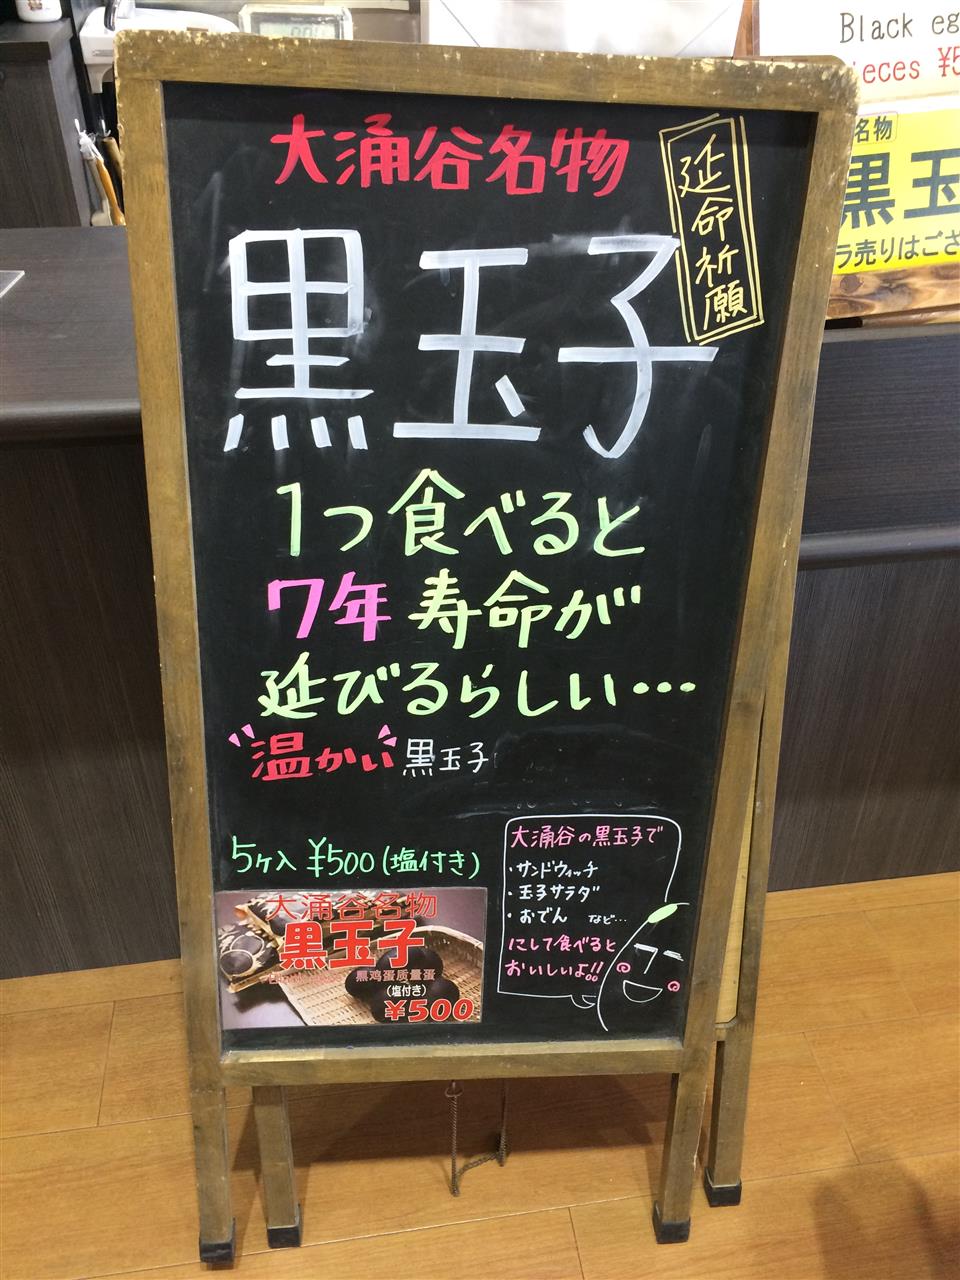 大涌谷名物
延命祈願
黒玉子
1つ食べると
7年寿命が
延びるらしい…
温かい黒玉子
5ケ入 ¥500(塩付き)
大涌谷名物
黒玉子
黒鸡蛋质量蛋
(塩付き)
¥500
大涌谷の黒玉子で
・サンドウィッチ
・玉子サラダ
・おでん など…
にして食べると
おいしいよ!!
Black eg
ieces ¥5
名物
黒玉
ラ売りはござ